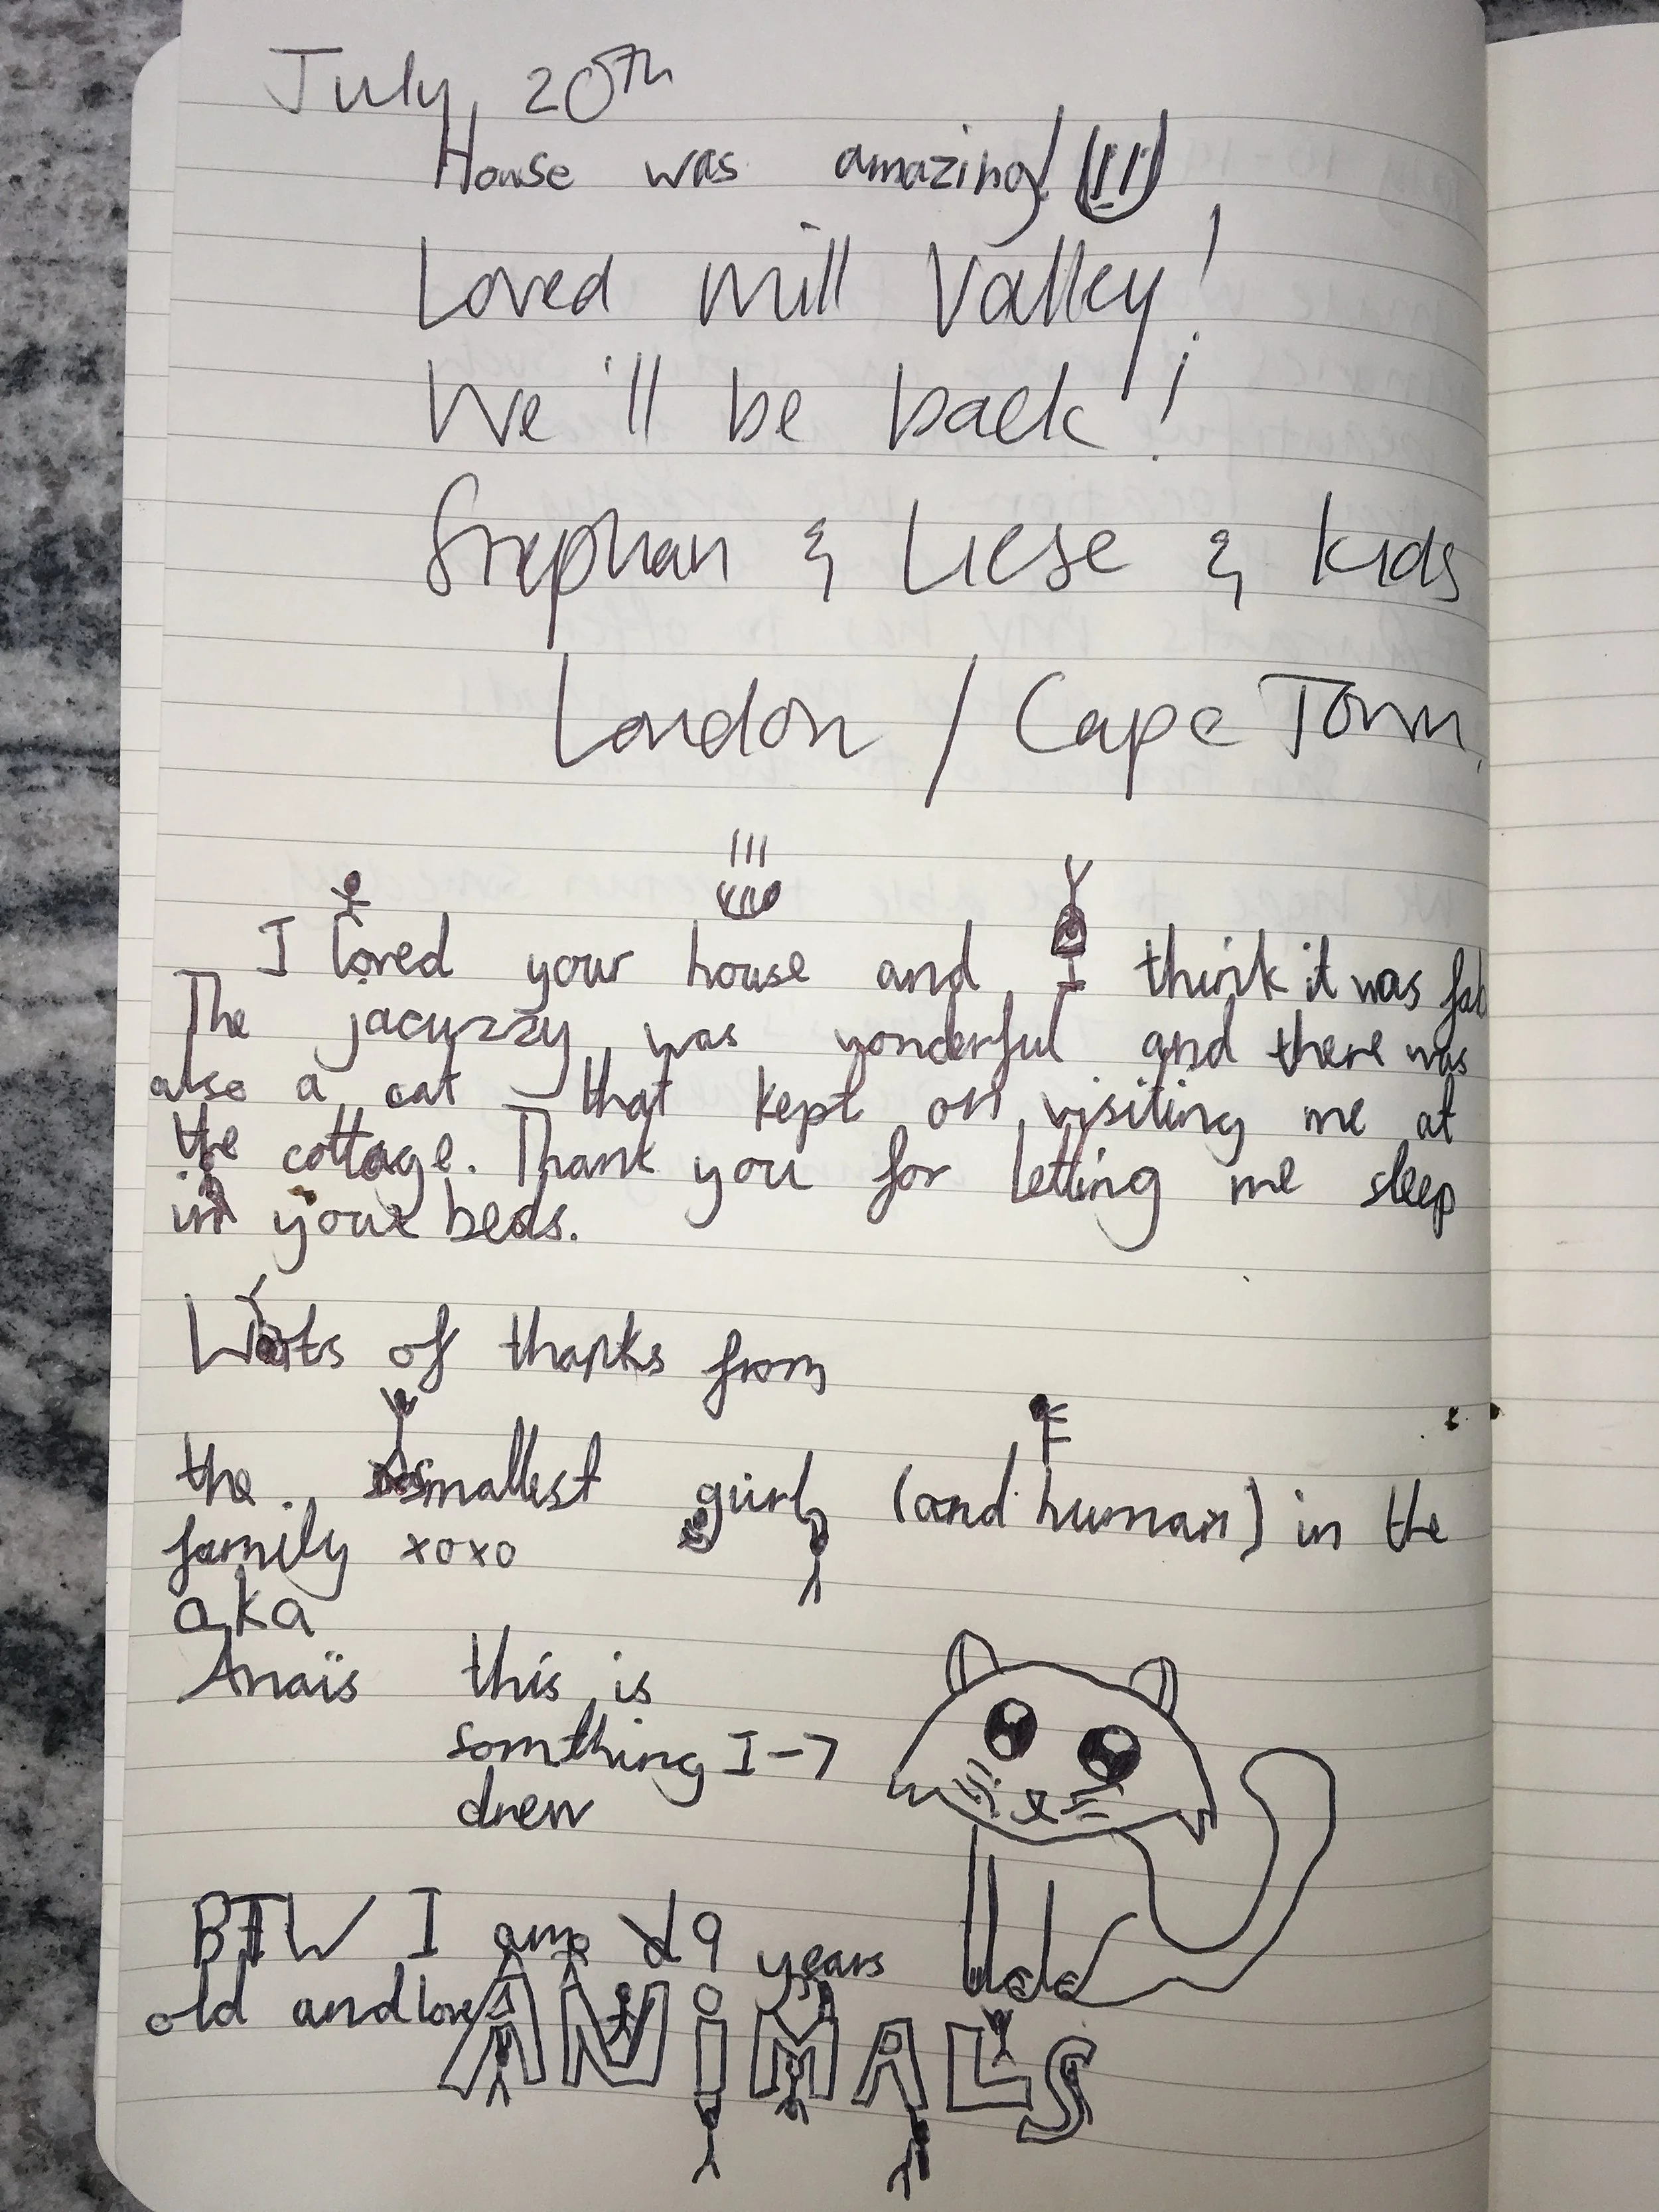 July 20th
House was amazing!!!!
Loved Mill Valley!
We'll be back!!
Stephan & Liese & kids
London / Cape Town.
I loved your house and I think it was fab
The jacuzzy was wonderful and there was
also a cat that kept on visiting me at
the cottage. Thank you for letting me sleep
in your beds.
Lots of thanks from
the smallest gurl (and human) in the
family xoxo
aka
Anaïs this is
somthing I →
drew
BTW I am 9 years
old and love ANiMALS